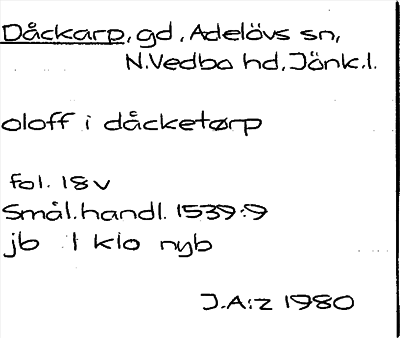 Dåckarp, gd, Adelövs sn,
N.Vedbo hd, Jönk.l.
oloff i dåcketørp
fol. 18v
Smål.handl. 1539:9
jb 1 klo nyb
J.A:z 1980